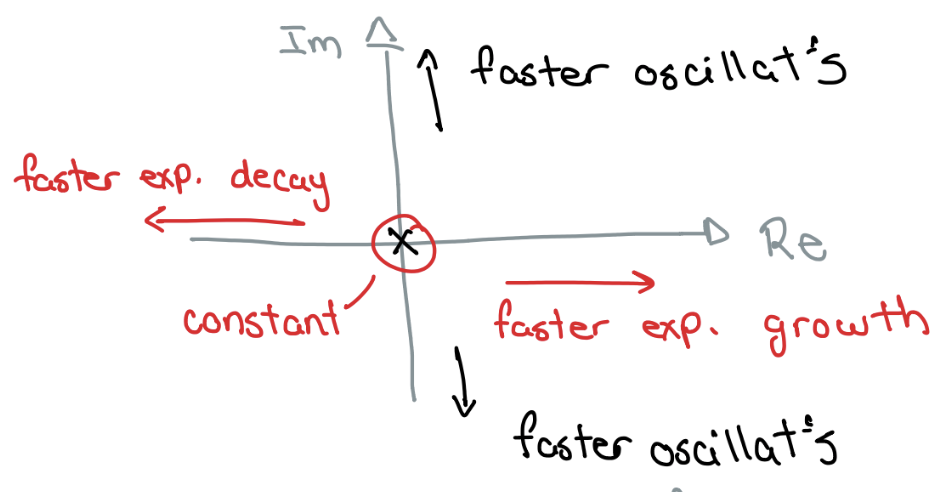 Im
faster oscillat's
faster exp. decay
Re
constant
faster exp. growth
faster oscillat's